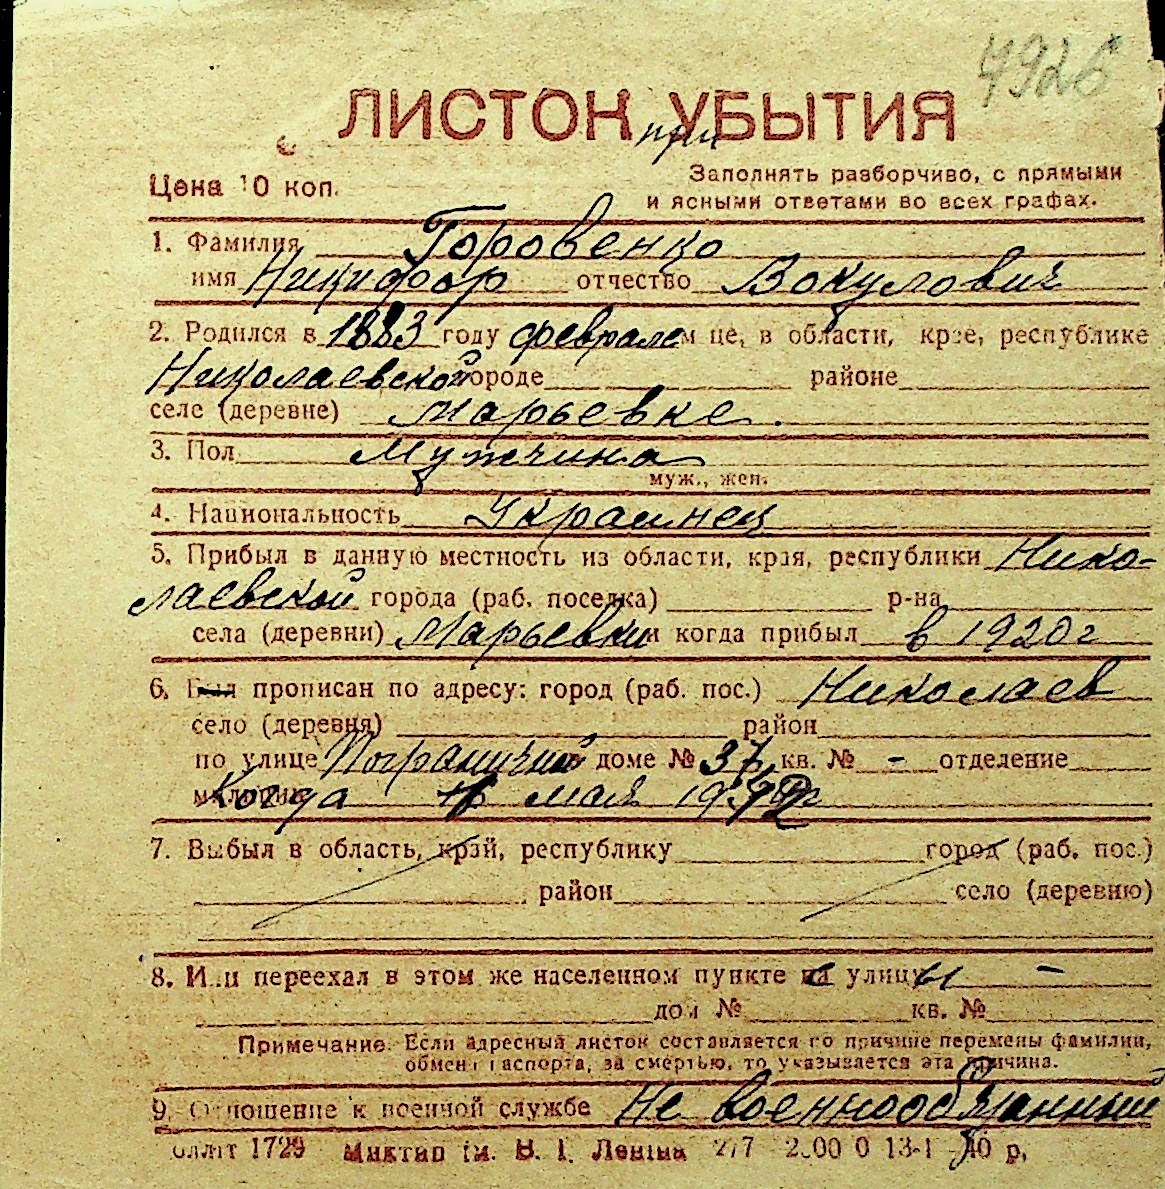 4926
ЛИСТОК УБЫТИЯ
при
Цена 10 коп.
Заполнять разборчиво, с прямыми
и ясными ответами во всех графах.
1. Фамилия Горовенко
имя Никифор отчество Вокулович
2. Родился в 1883 году феврале м це, в области, крае, республике
Николаевской городе районе
селе (деревне) Марьевке.
3. Пол Мужчина
муж., жен.
4. Национальность Украинец
5. Прибыл в данную местность из области, края, республики Нико-
лаевской города (раб. поселка) р-на
села (деревни) Марьевки и когда прибыл в 1920 г
6. Был прописан по адресу: город (раб. пос.) Николаев
село (деревня) район
по улице Пограничной доме № 37 кв. № - отделение
милиции Когда мая
7. Выбыл в область, край, республику город (раб. пос.)
район село (деревню)
8. Или переехал в этом же населенном пункте с улицы -
дом № кв. №
Примечание. Если адресный листок составляется по причине перемены фамилии,
обмена паспорта, за смертью, то указывается эта причина.
9. Отношение к военной службе Не военнообязанный
1729 Миктип ім. В. І. Леніна 277 13-1 40 р.